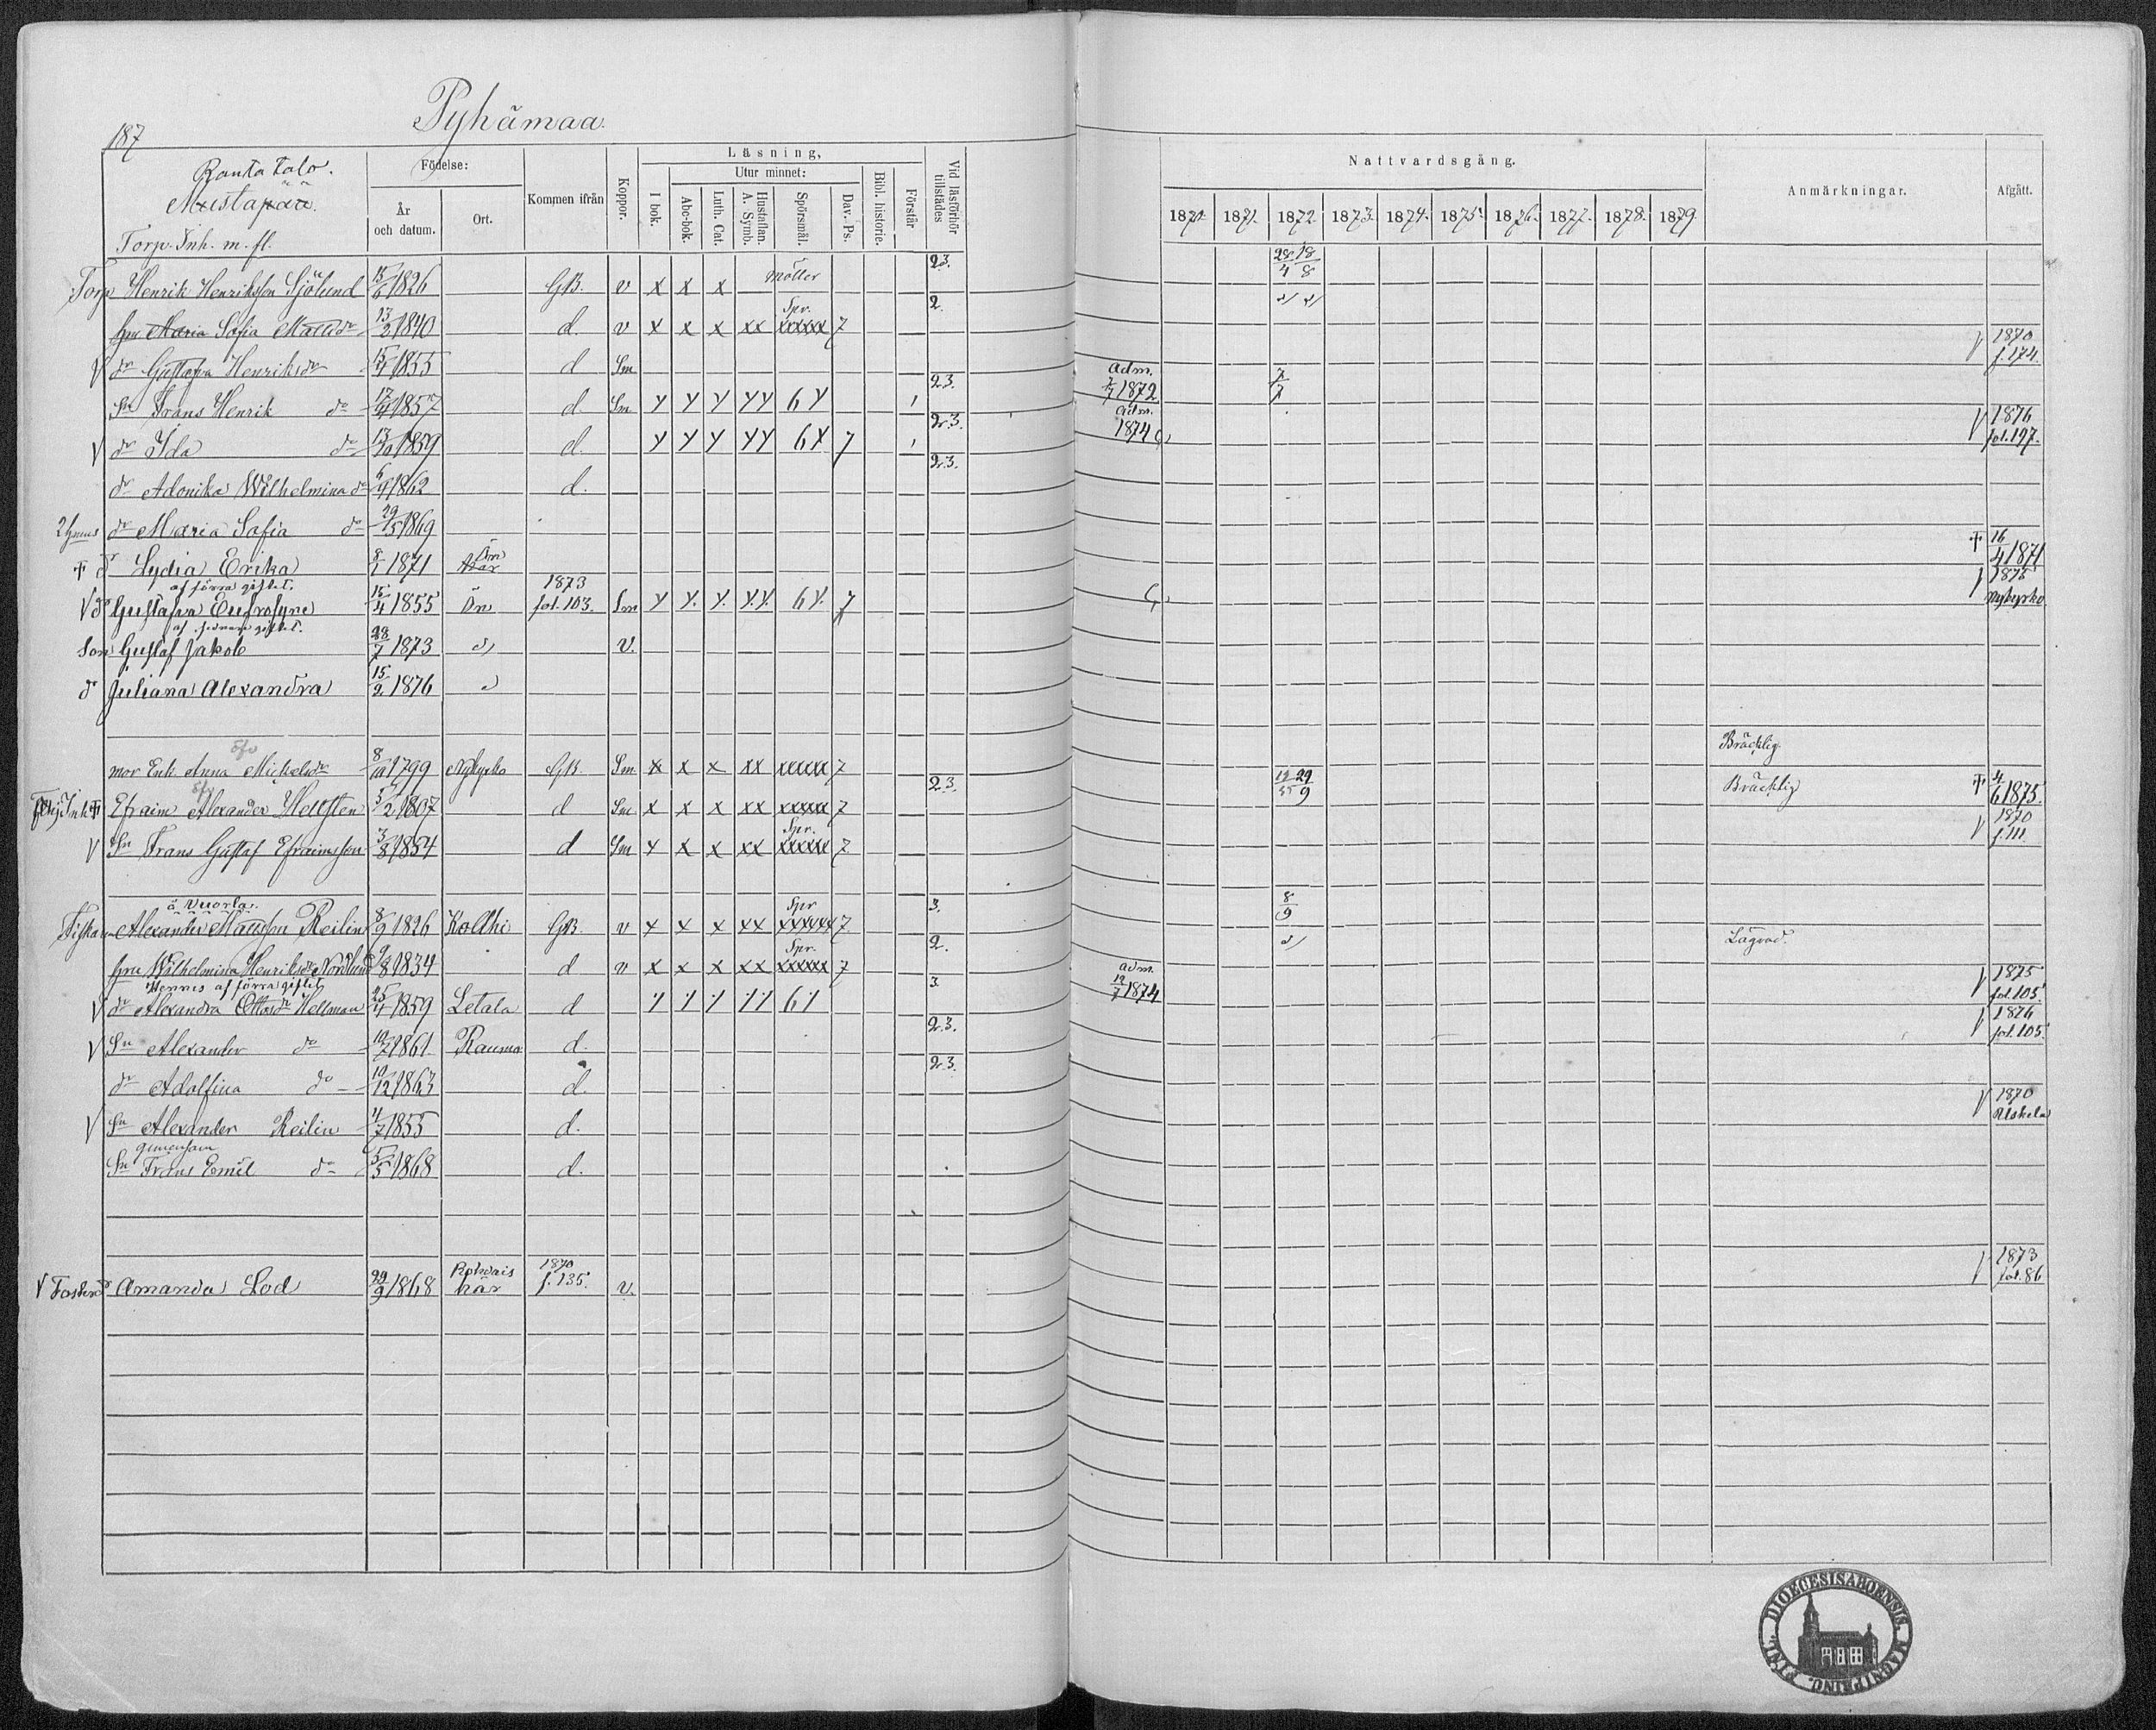 Pyhämaa.
187
Ranta talo.
Mustapää.
Torp. Inh. m. fl.
Födelse:
År och datum.
Ort.
Kommen ifrån
Koppor.
Läsning,
I bok.
Utur minnet:
Abc-bok.
Luth. Cat.
Hustaflan. A. Symb.
Spörsmål.
Dav. Ps.
Bibl. historie.
Förstår
Vid läsförhör tillstädes
Nattvardsgång.
1870. 1871. 1872. 1873. 1874. 1875. 1876. 1877. 1878. 1879.
Anmärkningar.
Afgått.
Torp Henrik Henriksson Sjölund 15/6 1826 GB. v x x x Möller 23. 28/4 18/8
hru Maria Sofia Mattsdr 13/2 1840 d. v x x x xx Spr. xxxxx 7 2.
V dr Gustafva Henriksdr 15/4 1855 d Sm V 1870 f. 174
Sn Frans Henrik do 17/4 1857 d Sm y y y yy 6y 23. Adm. 7/7 1872 7/7
V dr Ida do 13/10 1859 d. y y y yy 6y 7 2.3. Adm. 1874 V 1876 fol. 197.
dr Adonika Wilhelmina do 6/9 1862 d. 2.3.
dr Maria Sofia do 29/5 1869
† d Lydia Erika 8/2 1871 här † 16/4 1871
af förra giftet.
V dr Gustafva Eufrosyne 15/4 1855 1873 fol. 103. Sm y y. y. y.y. 6y. 7 V 1875 Nykyrko
Son Gustaf Jakob 28/7 1873 v.
dr Juliana Alexandra 15/2 1876
mor Enk. Anna Michelsdr 8/10 1799 Nykyrko GB. Sm x x x xx xxxxx 7 Bräcklig
† Efraim Alexander Hellsten 1807 d Sm x x x xx xxxxx 7 2.3. Bräcklig † 4/6 1875.
V Sn Frans Gustaf Efraimsson 3/8 1854 d Sm x x x xx Spr. xxxxx 7 V 1870 f. 111.
å Vuorla.
Fiskaren Alexander Mattsson Reilin 8/9 1826 Kollhi GB v x x x xx Spr xxxxxx 7 3. 8/9
hru Wilhelmina Henriksdr Nordlund 9/8 1834 d v x x x xx Spr. xxxxx 7 2. Lagvad.
Hennes af förra giftet
V dr Alexandra Ottosdr Hellman 25/4 1859 Letala d 6 3 Adm. 12/7 1874 V 1875 fol. 105
V Sn Alexander do 1861 Rauma d. 2.3. V 1876 fol. 105.
dr Adolfina do 10/12 1863 d. 2.3.
V Sn Alexander Reilin 4/7 1855 d. V 1870
gemensam
Sn Frans Emil do 5/5 1868 d.
V Amanda Lod 29/9 1868 här 1870 f. 135. v. V 1873 fol. 86
FINL. DIOECESIS ABOENSIS. MAGNI PRINC.